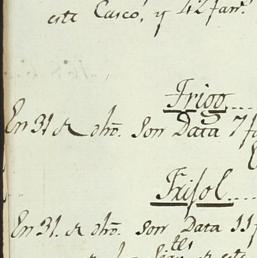 este Casco, y 42 fan.s
Trigo
En 31 de dho. son Data 7 fa
Frisol
En 31. de dho. son Data 11 f